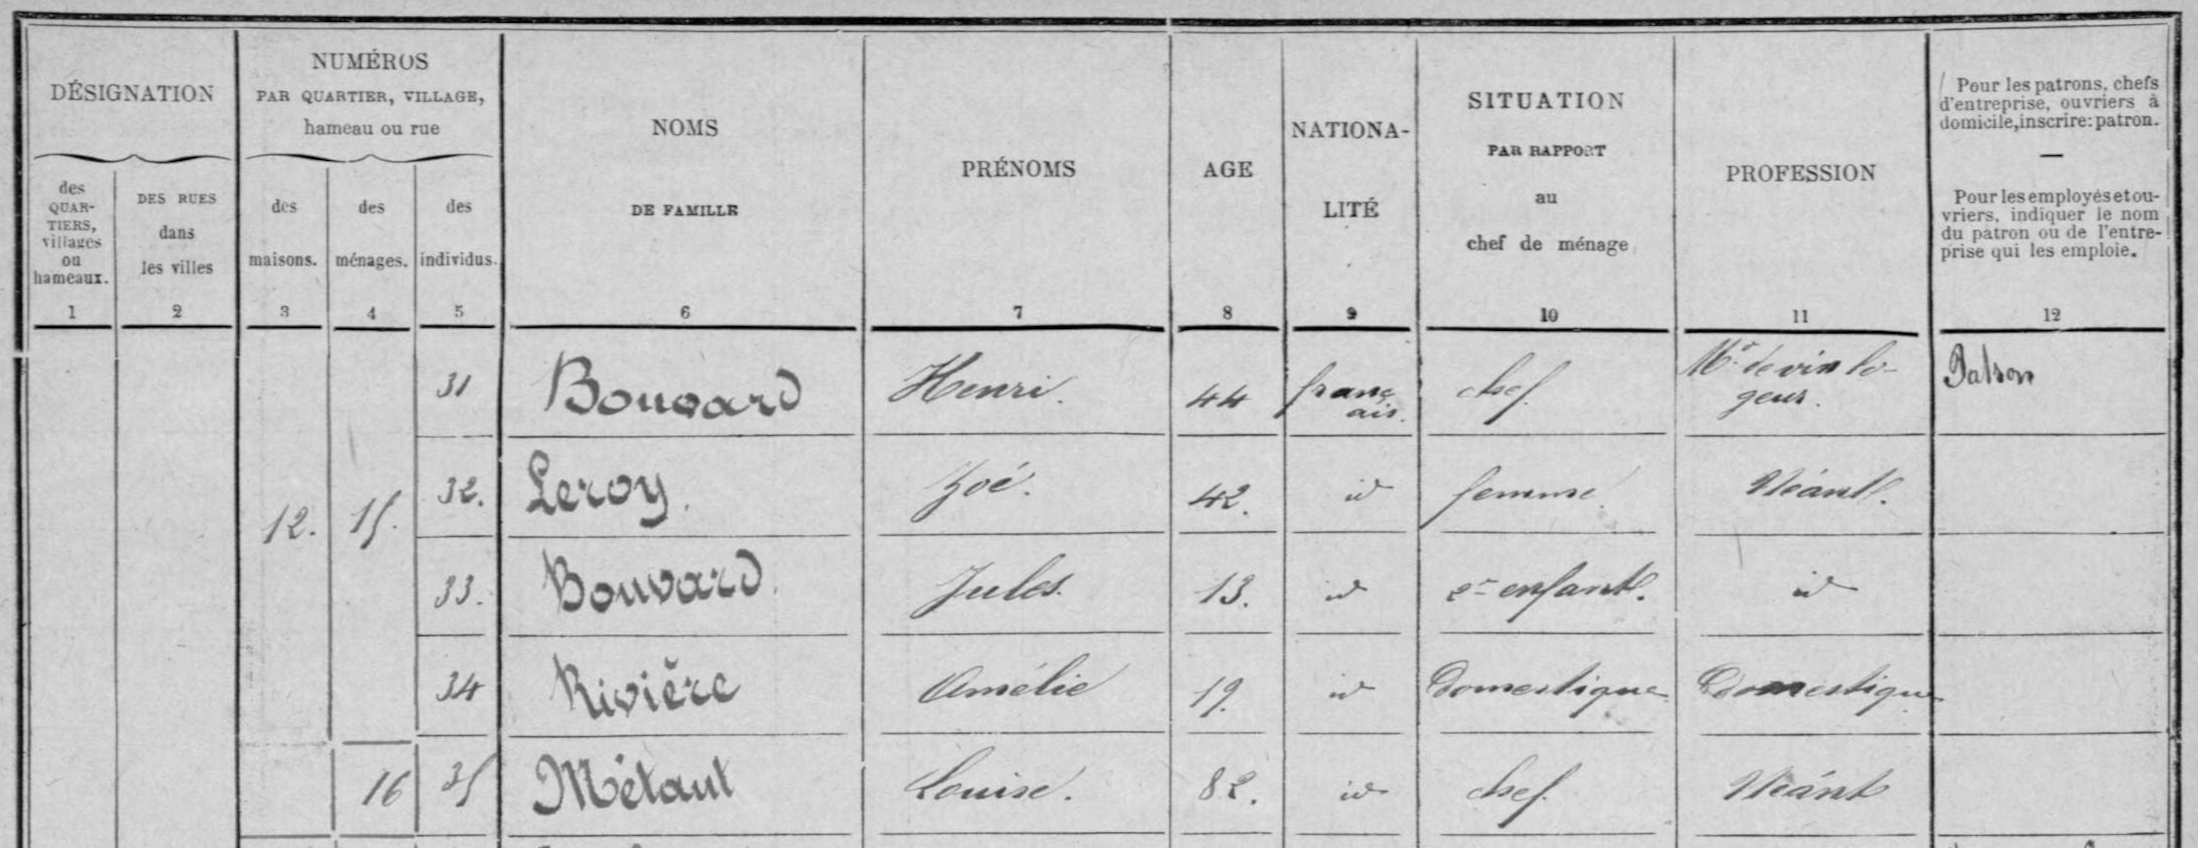 DÉSIGNATION
NUMÉROS
PAR QUARTIER, VILLAGE,
hameau ou rue
des
QUAR-
TIERS,
villages
ou
hameaux.
DES RUES
dans
les villes
des
maisons.
des
ménages.
des
individus.
NOMS
DE FAMILLE
PRÉNOMS
AGE
NATIONA-
LITÉ
SITUATION
PAR RAPPORT
au
chef de ménage
PROFESSION
Pour les patrons, chefs
d'entreprise, ouvriers à
domicile, inscrire: patron.
Pour les employés et ou-
vriers, indiquer le nom
du patron ou de l'entre-
prise qui les emploie.
1 2 3 4 5 6 7 8 9 10 11 12
31 Bouvard Henri. 44 franç
ais. chef. Md de vin lo-
geur. Patron
12. 15. 32. Leroy. Zoé. 42. id femme Néant.
33. Bouvard Jules. 13. id er enfant. id
34 Rivière Amélie 19. id Domestique Domestique
16 35 Métaut Louise. 82. id chef. Néant